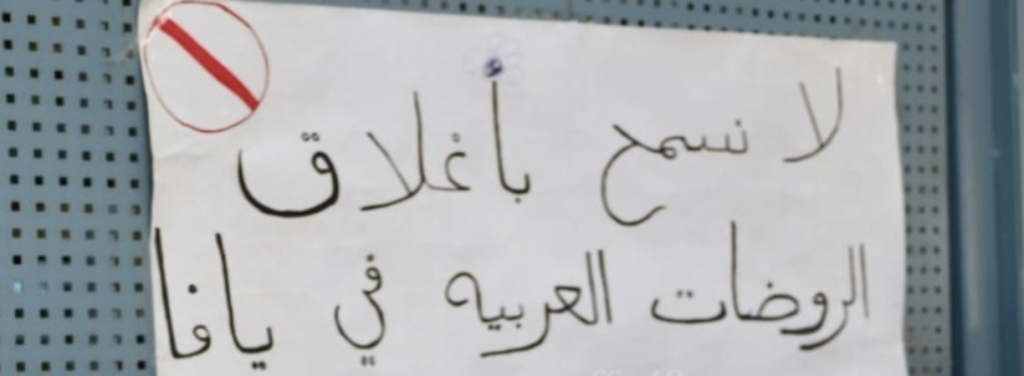 لا نسمح بأغلاق
الروضات العربيه في يافا